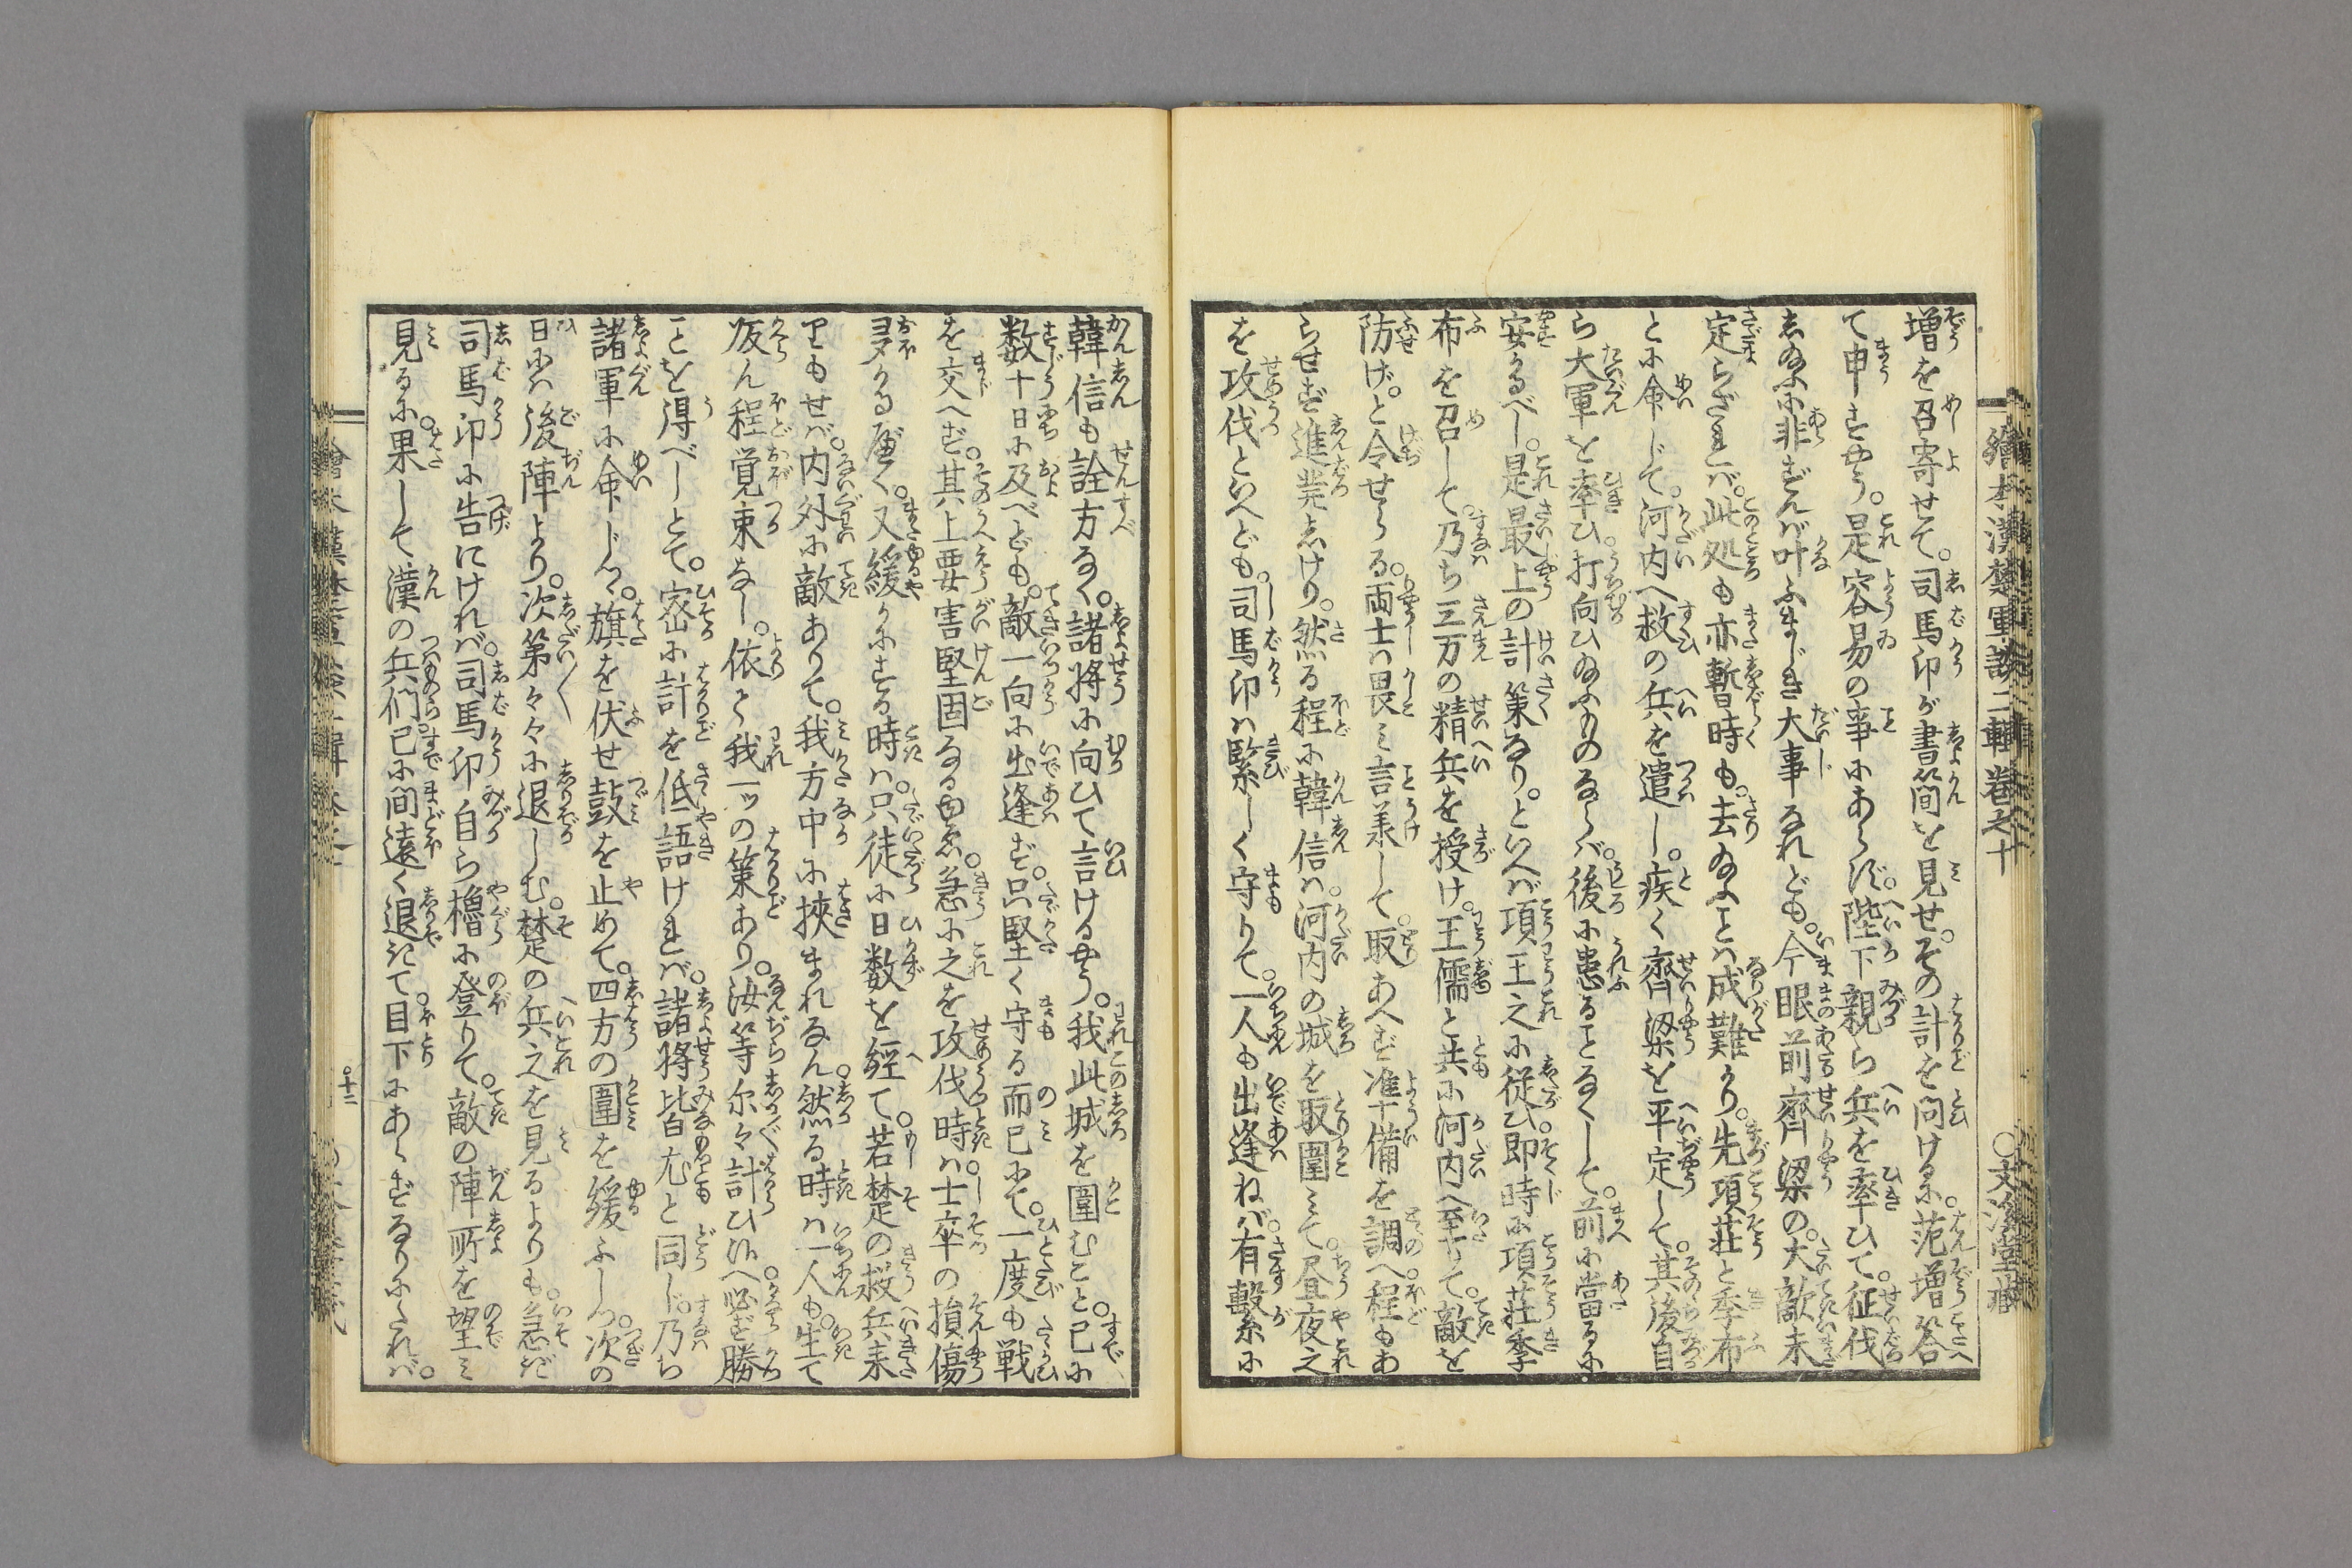 繪本漢楚軍談二輯巻之十
○文溪堂藏
増を召寄せて。司馬卬が書簡を見せ。その計を問けるに。范増答へ
て申すやう。是容易の事にあらず。陛下親ら兵を率ひて。征伐
し給ふに非ずんば叶ふまじき大事なれども。今眼前齊梁の。大敵未
定らざれバ。此処も亦暫時も。去給ふことハ成難かり。先項荘と季布
とに命じて。河内へ救の兵を遣し。疾く齊梁を平定して。其後自
ら大軍を率ひ。打向ひ給ふものならバ。後に患ることなくして。前に當るに
安かるべし。是最上の計策なり。といへバ項王之に従ひ。即時に項荘季
布を召して。乃ち三万の精兵を授け。王儒と共に河内へ至りて。敵を
防げ。と令せらる。両士ハ畏み言羕して。取あへず准備を調へ程もあ
らせず進発しけり。然る程に韓信ハ。河内の城を取圍みて。昼夜之
を攻伐といへども。司馬卬ハ緊しく守りて。一人も出逢ねバ。有繋に
韓信も詮方なく。諸将に向ひて言けるやう。我此城を圍むこと。已に
数十日に及べども。敵一向に出逢ず。只堅く守る而已にて。一度も戦
を交へず。其上要害堅固なるゆゑ。急に之を攻伐時ハ。士卒の損傷
多かる べく。又緩かにする時ハ。只徒に日数を経て。若楚の救兵来
りもせバ。内外に敵ありて。我方中に挟まれなん。然る時ハ一人も。生て
皈ん程覚束なし。依て我一ッの策あり。汝等尓々計ひ給へ。必ず勝
ことを得べしとて。密に計を低語けれバ。諸将皆尤と同じ。乃ち
諸軍に命じて。旗を伏せ鼓を止めて。四方の圍を緩ふしつ。次の
日にハ後陣より。次第々々に退しむ。楚の兵之を見るよりも。急ぎ
司馬卬に告にけれバ。司馬卬自ら櫓に登りて。敵の陣所を望み
見るに。果して漢の兵们。已に間遠く退きて。目下にあらずなりにたれバ。
○十二